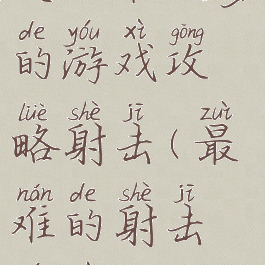 de yóu xì gōng
的游戏攻
lüè shè jī zuì
略射击(最
nán de shè jī
难的射击